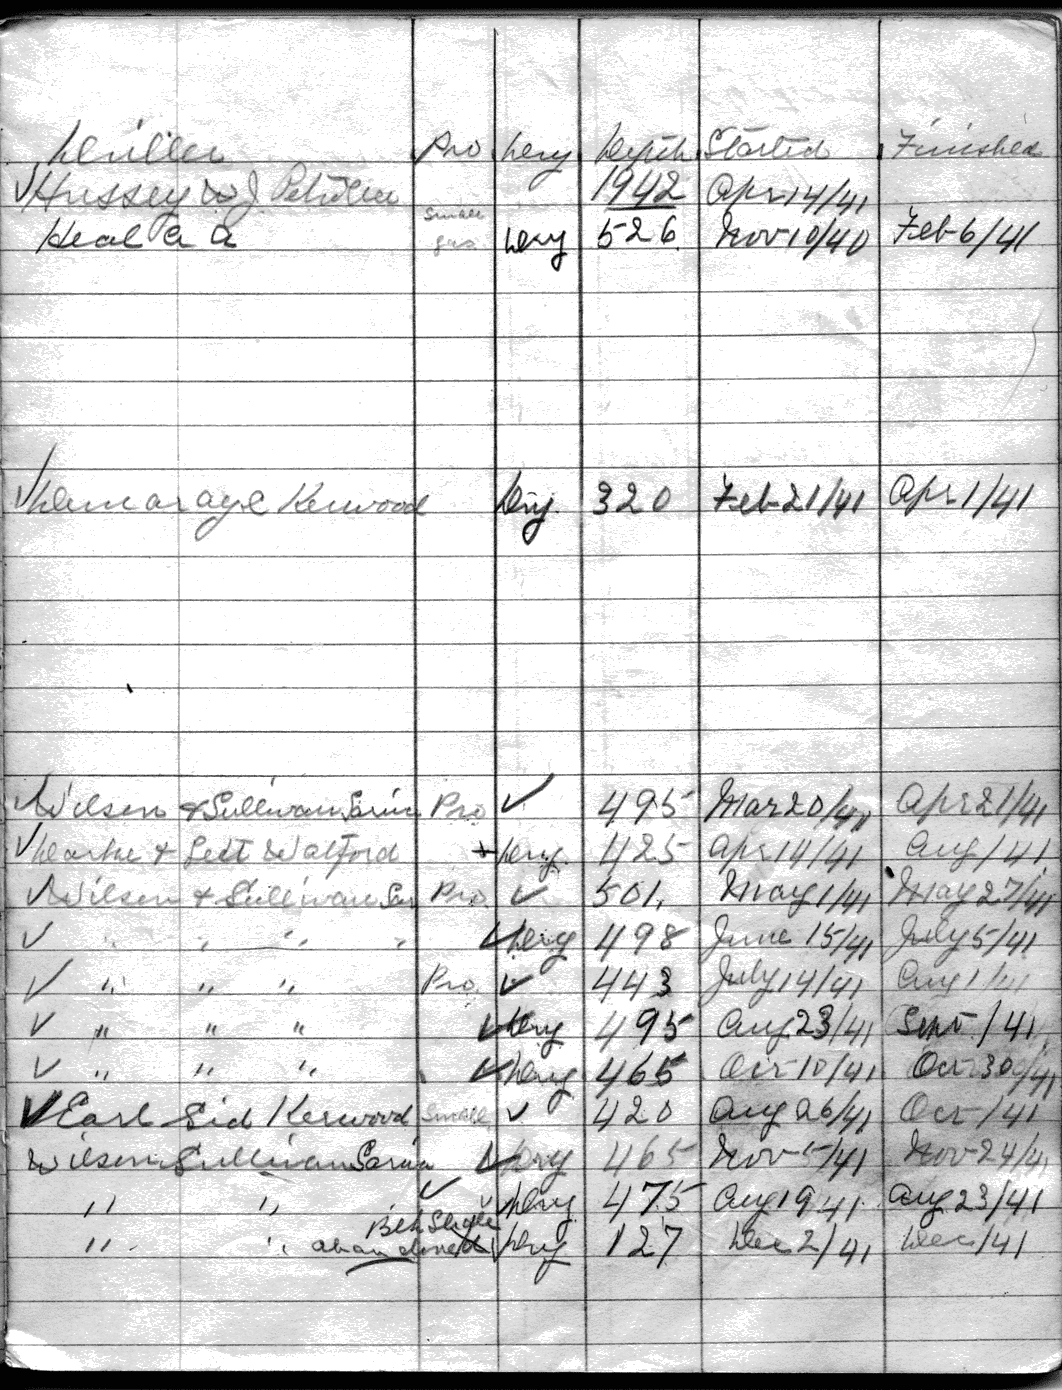 Driller Pro Dry Depth Started Finished
Hussey W J Petrolia 1942 Apr 14/41
Small
Heal A A gas Dry 526 Nov 10/40 Feb 6/41
Demaraye Kerwood Dry 320 Feb 21/41 Apr 1/41
Wilson & Sullivan Sarnia Pro ✓ 495 Mar 20/41 Apr 21/41
& Watford Dry 425 Apr 14/41 Aug 1 41
Wilson & Sullivan Sar Pro ✓ 501 May 1/41 May 27/41
✓ " " " " ✓ Dry 498 June 15/41 July 5/41
✓ " " " Pro ✓ 443 July 14/41 Aug 1/41
✓ " " " ✓ Dry 495 Aug 23/41 Sept /41
✓ " " " ✓ Dry 465 Oct 10/41 Oct 30/41
✓ Earl Sid Kerwood Small ✓ 420 Aug 26/41 Oct /41
Wilson Sullivan Sarnia ✓ Dry 465 Nov 5/41 Nov 24/41
" " ✓ Dry 475 Aug 19 41 Aug 23/41
" " abandoned Dry 127 Dec 2/41 Dec /41